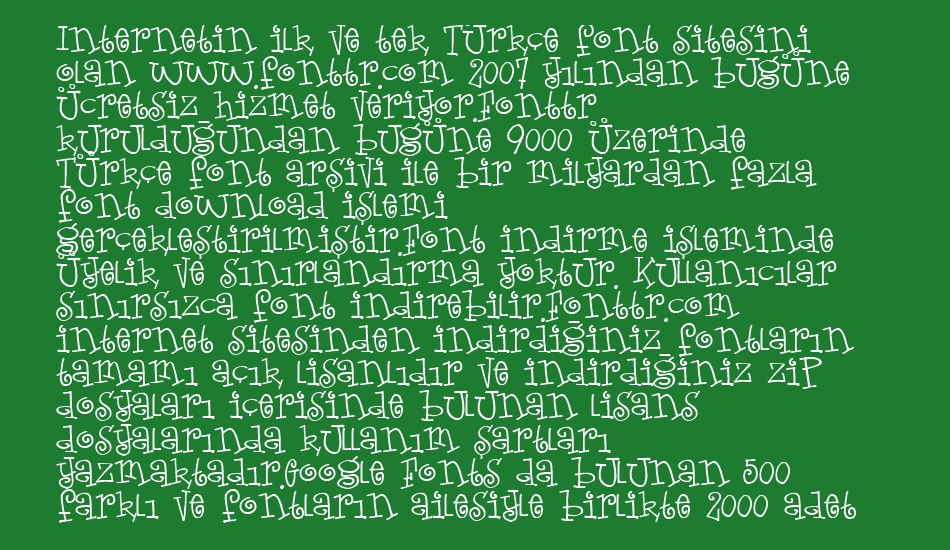 İnternetin ilk ve tek Türkçe font sitesini
olan www.fonttr.com 2007 yılından bugüne
ücretsiz hizmet veriyor.Fonttr
kurulduğundan bugüne 9000 üzerinde
Türkçe font arşivi ile bir milyardan fazla
font download işlemi
gerçekleştirilmiştir.Font indirme işleminde
üyelik ve sınırlandırma yoktur. Kullanıcılar
sınırsızca font indirebilir.Fonttr.com
internet sitesinden indirdiğiniz fontların
tamamı açık lisanlıdır ve indirdiğiniz ziP
dosyaları içerisinde bulunan lisans
dosyalarında kullanım şartları
yazmaktadır.Google Fonts da bulunan 500
farklı ve fontların ailesiyle birlikte 2000 adet